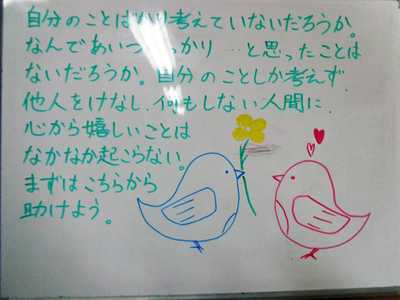 自分のことばかり考えていないだろうか。
なんであいつばっかり…と思ったことは
ないだろうか。自分のことしか考えず、
他人をけなし、何もしない人間に、
心から嬉しいことは
なかなか起こらない。
まずはこちらから
助けよう。